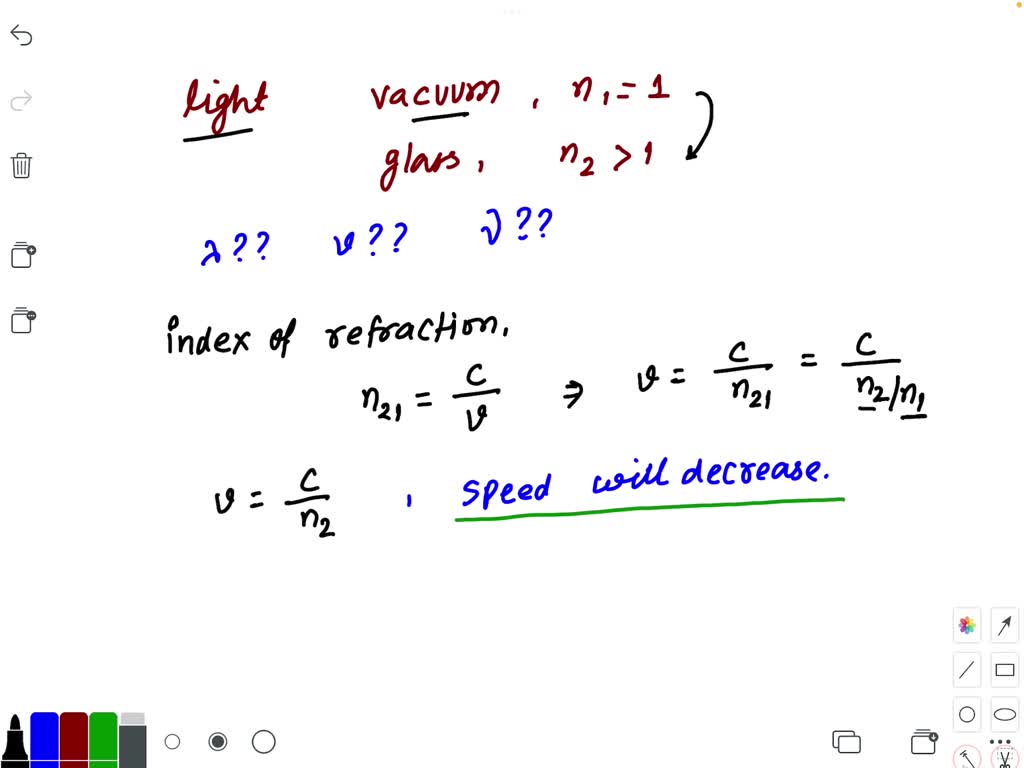 light vacuum, n₁ = 1
glass, n₂ > 1
λ?? v?? ν??
index of refraction.
n₂₁ = c/v ⇒ v = c/n₂₁ = c/(n₂/n₁)
v = c/n₂ , speed will decrease.